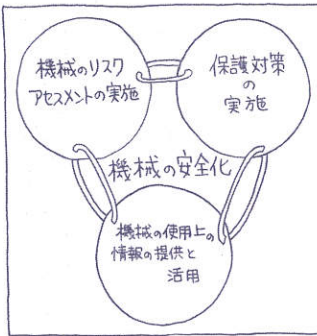 機械のリスク
アセスメントの実施
保護対策
の
実施
機械の安全化
機械の使用上の
情報の提供と
活用